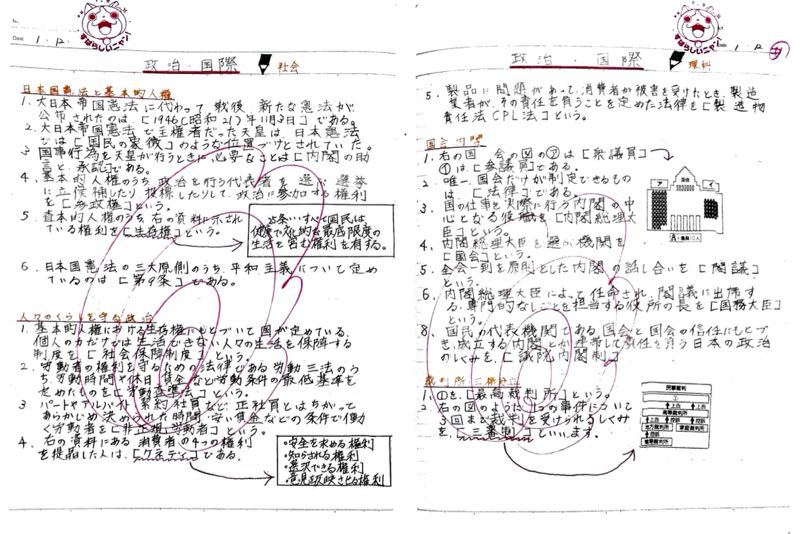 すばらしいニャン!
Date 1. 12.
政治・国際 社会
日本国憲法と基本的人権
1. 大日本帝国憲法に代わって戦後、新たな憲法が
公布されたのは、[1946(昭和21)年11月3日]である。
2. 大日本帝国憲法で主権者だった天皇は、日本憲法
では[国民の象徴]のような位置づけとされていた。
3 国事行為を天皇が行うときに必要なことは[内閣の助
言と承認]である。
4. 基本的人権のうち、政治を行う代表者を選ぶ選挙
に立候補したり、投票したりして、政治に参加する権利
を[参政権]という。
5. 基本的人権のうち、右の資料に示され
ている権利を[生存権]という。
25条 すべて国民は、
健康で文化的な最低限度の
生活を営む権利を有する。
6. 日本国憲法の三大原則のうち、平和主義について定め
ているのは[第9条]である。
人々のくらしを守る政治
1. 基本的人権における生存権にもとづいて国が定めている、
個人の力だけでは生活できない人々の生活を保障する
制度を、[社会保障制度]という。
2. 労働者の権利を守るための法律である労働三法のう
ち、労働時間や休日、賃金など労働条件の最低基準を
定めたものを[労働基準法]という。
3 パートやアルバイト、契約社員など、正社員とはちがって
あらかじめ決められた時間、安い賃金などの条件で働
く労働者を[非正規労働者]という。
4. 右の資料にある消費者の4つの権利
を提唱した人は、[ケネディ]である。
・安全を求める権利
・知らされる権利
・選択できる権利
・意見を反映させる権利
すばらしいニャン!
Date 1. 12
政治・国際 理科
5. 製品に問題があって、消費者が被害を受けたとき、製造
業者が、その責任を負うことを定めた法律を[製造物
責任法(PL法)]という。
国会 内閣
1. 右の国会の図の㋐は[衆議員]
㋑は[参議員]である。
2. 唯一、国会だけが制定できるもの
は、[法律]である。
3. 国の仕事を実際に行う内閣の中
心となる役職を[内閣総理大
臣]という。
4. 内閣総理大臣を選ぶ機関を
[国会]という。
5. 全会一致を原則とした内閣の話し合いを[閣議]
という。
6. 内閣総理大臣によって任命され、閣議に出席す
る、専門的なしごとを担当する役所の長を[国務大臣]
という。
8. 国民の代表機関である国会と国会の信任にもとづ
き、成立する内閣とが連帯して責任を負う日本の政治
のしくみを、[議院内閣制]
裁判所、三権分立
1. ㋐を[最高裁判所]という。
2. 右の図のように1つの事件について
3回まで裁判を受けられるしくみ
を、[三審制]といいます。
国会
ア
イ
民事裁判
最高裁判所
上告 上告
高等裁判所
上告 控訴 控訴
地方裁判所 家庭裁判所
控訴
簡易裁判所